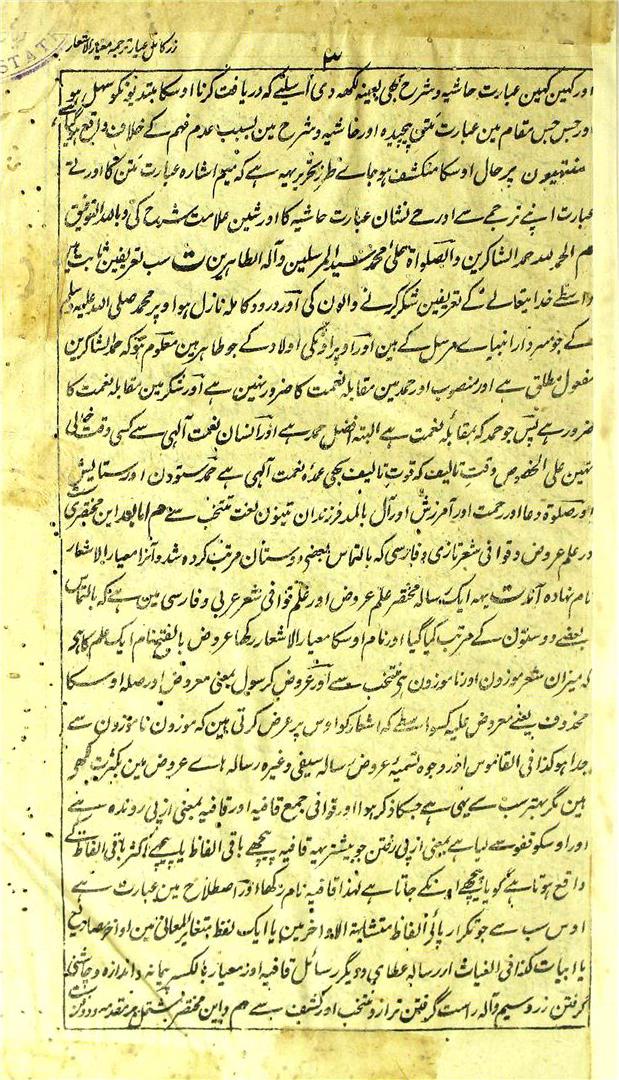 زر کامل عیار ترجمہ معیار الاشعار
۳
STATE
اور کہین کہین عبارت حاشیہ و شرح بھی بعینہ لکھہ دی اسلیے کہ دریافت کرنا اوسکا مبتدیونکو سہل ہو
اور جس جس مقام مین عبارت متن پیچیدہ اور حاشیہ و شرح مین بسبب عدم فہم کے خلاف واقع ہو گیا ہے
منتہیون پر حال اوسکا منکشف ہو جاے طرز تحریر یہہ ہے کہ میم اشارہ عبارت متن کا اور تے
عبارت اپنے ترجمے سے اور حے نشان عبارت حاشیہ کا اور شین علامت شرح کی و باللہ التوفیق
م الحمد للہ حمد الشاکرین والصلواۃ علی محمد سید المرسلین وآلہ الطاہرین ت سب تعریفین ثابت ہین
واسطے خدایتعالے کے تعریفین شکر کرنے والون کی اور درود کاملہ نازل ہو اوپر محمد صلی اللہ علیہ وسلم
کے جو سردار انبیاے مرسل کے ہین اور اوپر اونکی اولاد کے جو طاہر ہین معلوم ہو کہ حمد الشاکرین
مفعول مطلق ہے اور منصوب اور حمد مین مقابلہ نعمت کا ضرور نہین ہے اور شکر مین مقابلہ نعمت کا
ضرور ہے پس جو حمد کہ بمقابلہ نعمت ہے البتہ افضل حمد ہے اور انسان نعمت آلہی سے کسی وقت خالی
نہین علی الخصوص وقت تالیف کہ قوت تالیف بھی عمدہ نعمت آلہی ہے حمد ستودن اور ستایش
اور صلوۃ دعا اور رحمت اور آمرزش اور آل بالمد فرزندان تینون لغت منتخب سے م اما بعد این مختصریست
در علم عروض و قوافی شعر تازی و فارسی کہ بالتماس بعضی دوستان مرتب کردہ شد و آنرا معیار الاشعار
نام نہادہ آمد ت یہہ ایک رسالہ مختصر علم عروض اور علم قوافی شعر عربی و فارسی مین ہے کہ بالتماس
بعضے دوستون کے مرتب کیا گیا اور نام اوسکا معیار الاشعار رکھا عروض بالفتح نام ایک علم کا ہے
کہ میزان شعر موزون اور ناموزون ہے منتخب سے اور عروض کرسول بمعنی معروض اور صلہ اوسکا
محذوف یعنے معروض علیہ کسواسطے کہ اشعار کو اوس پر عرض کرتی ہین کہ موزون ناموزون سے
جدا ہو کذا فی القاموس اور وجوہ تسمیہ عروض رسالہ سیفی وغیرہ رسالہ ہاے عروض مین بکثرت لکھی
ہین مگر بہتر سب سے یہی ہے جسکا ذکر ہوا اور قوافی جمع قافیہ اور قافیہ بمعنی از پی روندہ ہے
اور اوسکو قفو سے لیا ہے بمعنی از پی رفتن جو بیشتر یہہ قافیہ پیچھے باقی الفاظ یا پیچھے اکثر باقی الفاظ کے
واقع ہوتا ہے گویا پیچھے اونکے جاتا ہے لہذا قافیہ نام رکھا اور اصطلاح مین عبارت ہے
اوس سے جو تکرار پائے الفاظ متشابہۃ الاواخر مین یا ایک لفظ متغایر المعانی مین اواخر مصاریع
یا ابیات کذا فی الغیاث اور رسالہ عطای و دیگر رسائل قافیہ اور معیار بالکسر پیمانہ و اندازہ و چاشنی
گرفتن زر و سیم و آلہ راست گرفتن ترازو منتخب اور کشف سے م و این مختصر مشتمل بر مقدمہ و دو فن